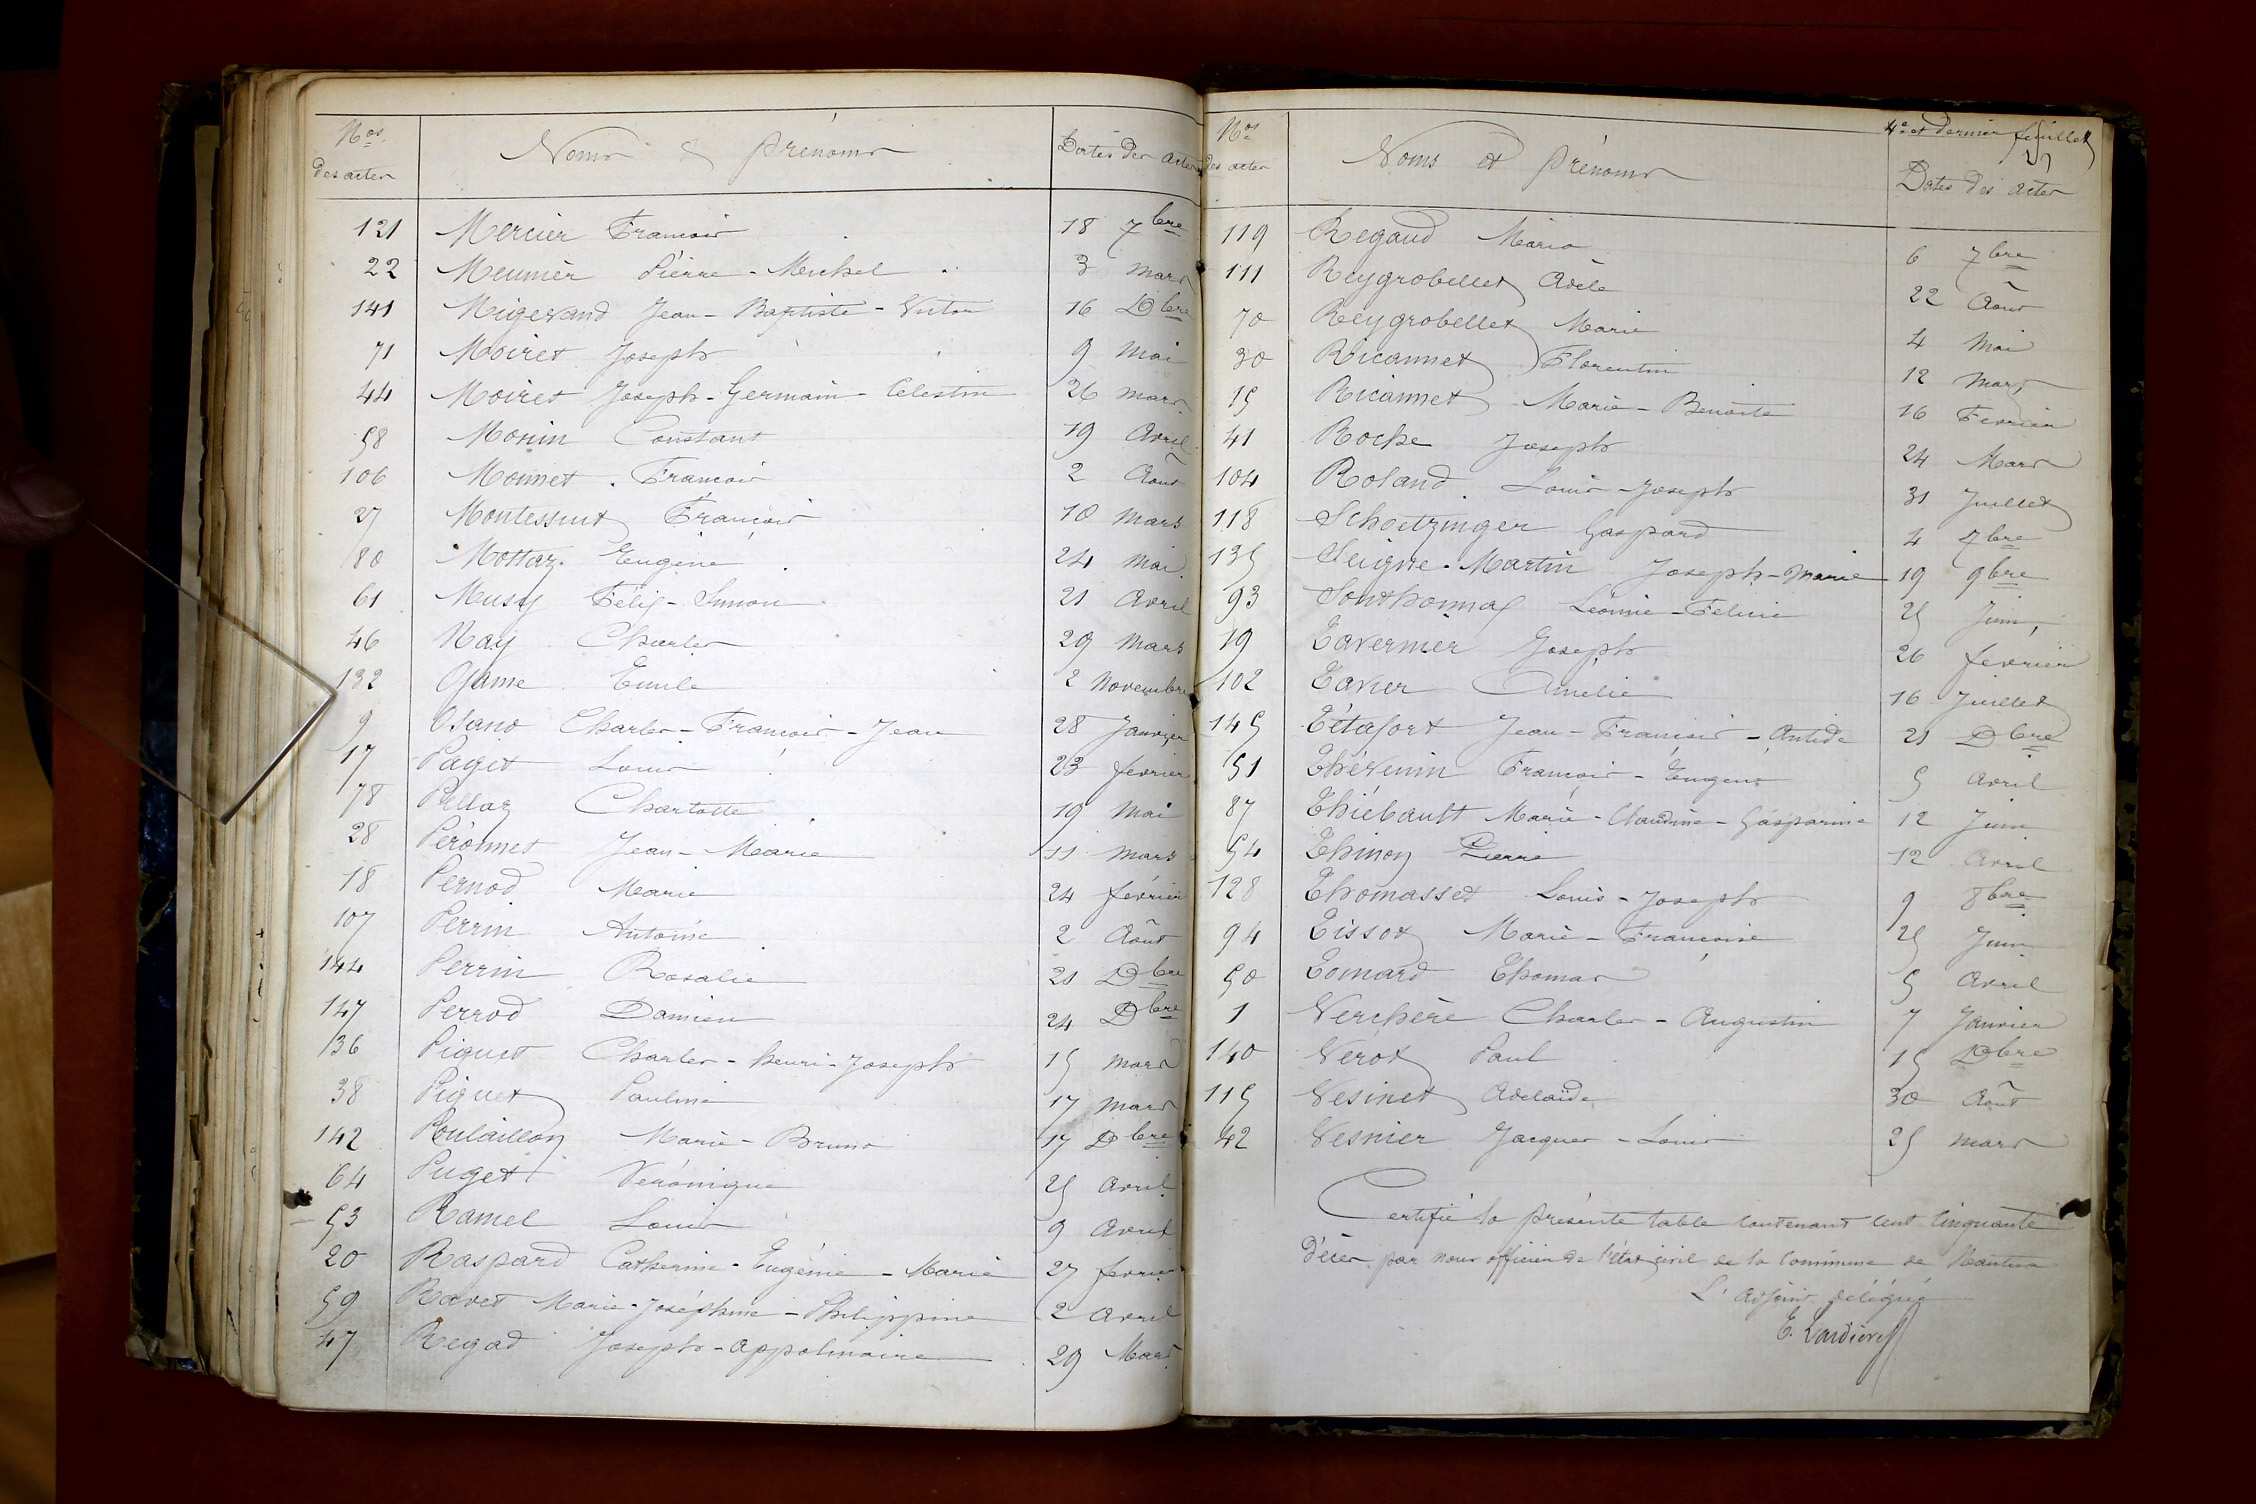 Nos des actes Noms & prénoms Dates des actes
121 Mercier François 18 7bre
22 Meunier Pierre-Michel 3 mars
141 Migevand Jean-Baptiste-Victor 16 Dbre
71 Moiret Joseph 9 Mai
44 Moiret Joseph-Germain-Célestin 26 mars
58 Monin Constant 19 Avril
106 Monnet François 2 Août
27 Montessuit François 10 Mars
80 Mottaz Eugène 24 Mai
61 Mussy Félix-Simon 21 Avril
46 Nay Charles 29 Mars
132 Ojame Emile 2 Novembre
9 Osano Charles-François-Jean 28 Janvier
17 Paget Louis 23 février
78 Pellaz Charlotte 19 Mai
28 Péronnet Jean-Marie 11 Mars
18 Pernod Marie 24 février
107 Perrin Antoine 2 Août
144 Perrin Rosalie 21 Dbre
147 Perrod Damien 24 Dbre
136 Piquet Charles-henri-Joseph 15 mars
38 Piquet Pauline 17 mars
142 Poulaillon Marie-Bruno 17 Dbre
64 Puget Véronique 25 Avril
53 Ramel Louis 9 Avril
20 Raspard Catherine-Eugénie-Marie 27 fevrier
59 Ravet Marie-Joséphine-Philippine 2 Avril
47 Regad Joseph-Appolinaire 29 Mars
4e et dernier feuillet
Nos des actes Noms et prénoms Dates des actes
119 Regaud Maria 6 7bre
111 Reygrobellet Adèle 22 Août
70 Reygrobellet Marie 4 Mai
30 Ricannet Florentin 12 Mars
15 Ricannet Marie-Benoite 16 Fevrier
41 Roche Joseph 24 Mars
104 Roland Louis-Joseph 31 Juillet
118 Schoetzinger Gaspard 4 7bre
135 Seigne-Martin Joseph-Marie 19 9bre
93 Sonthonnax Léonie-Félicie 25 Juin
19 Tavernier Joseph 26 fevrier
102 Tavier Amélie 16 Juillet
145 Tétafort Jean-François-Antide 21 Dbre
51 Thévenin François-Eugène 5 Avril
87 Thiébault Marie-Claudine-Gasparine 12 Juin
54 Thinon Pierre 12 Avril
128 Thomasset Louis-Joseph 9 8bre
94 Tissot Marie-Françoise 25 Juin
50 Tomard Thomas 5 Avril
1 Verchère Charles-Augustin 7 Janvier
140 Verot Paul 15 Dbre
115 Vesinet Adelaïde 30 Août
42 Vesnier Jacques-Louis 25 mars
Certifié la présente table contenant cent cinquante
décès par nous officier de l'état civil de la commune de Nantua
L'adjoint délégué